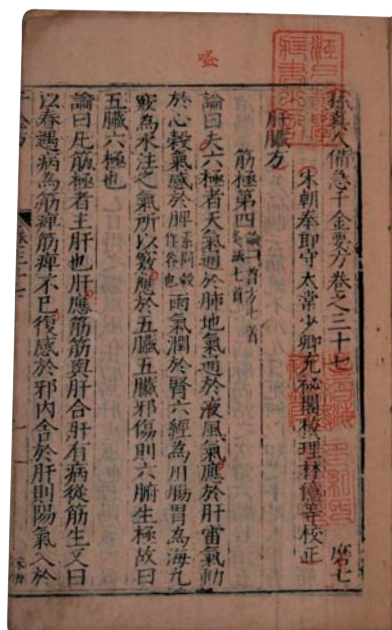 孫真人備急千金要方卷之三十七 席七
宋朝奉郎守太常少卿充秘閣校理林億等校正
肝臟方
筋極第四
論曰夫六極者天氣通於肺地氣通於液風氣應於肝雷氣動
於心穀氣感於脾雨氣潤於腎六經為川腸胃為海九
竅為水注之氣所以竅應於五臟五臟邪傷則六腑生極故曰
五臟六極也
論曰凡筋極者主肝也肝應筋筋與肝合肝有病從筋生又曰
以春遇病為筋痺筋痺不已復感於邪內舍於肝則陽氣入於